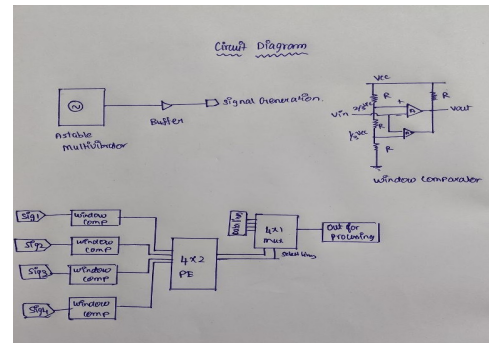 Circuit Diagram
Astable
Multivibrator
Buffer
Signal Generation.
Vcc
R
R
2/3 Vcc
+
Vin
Vout
R
1/3 Vcc
R
Window Comparator
Sig1
Window
comp
Sig2
Window
comp
Sig3
Window
comp
Sig4
Window
comp
4x2
PE
4x1
mux
Select lines
Out for